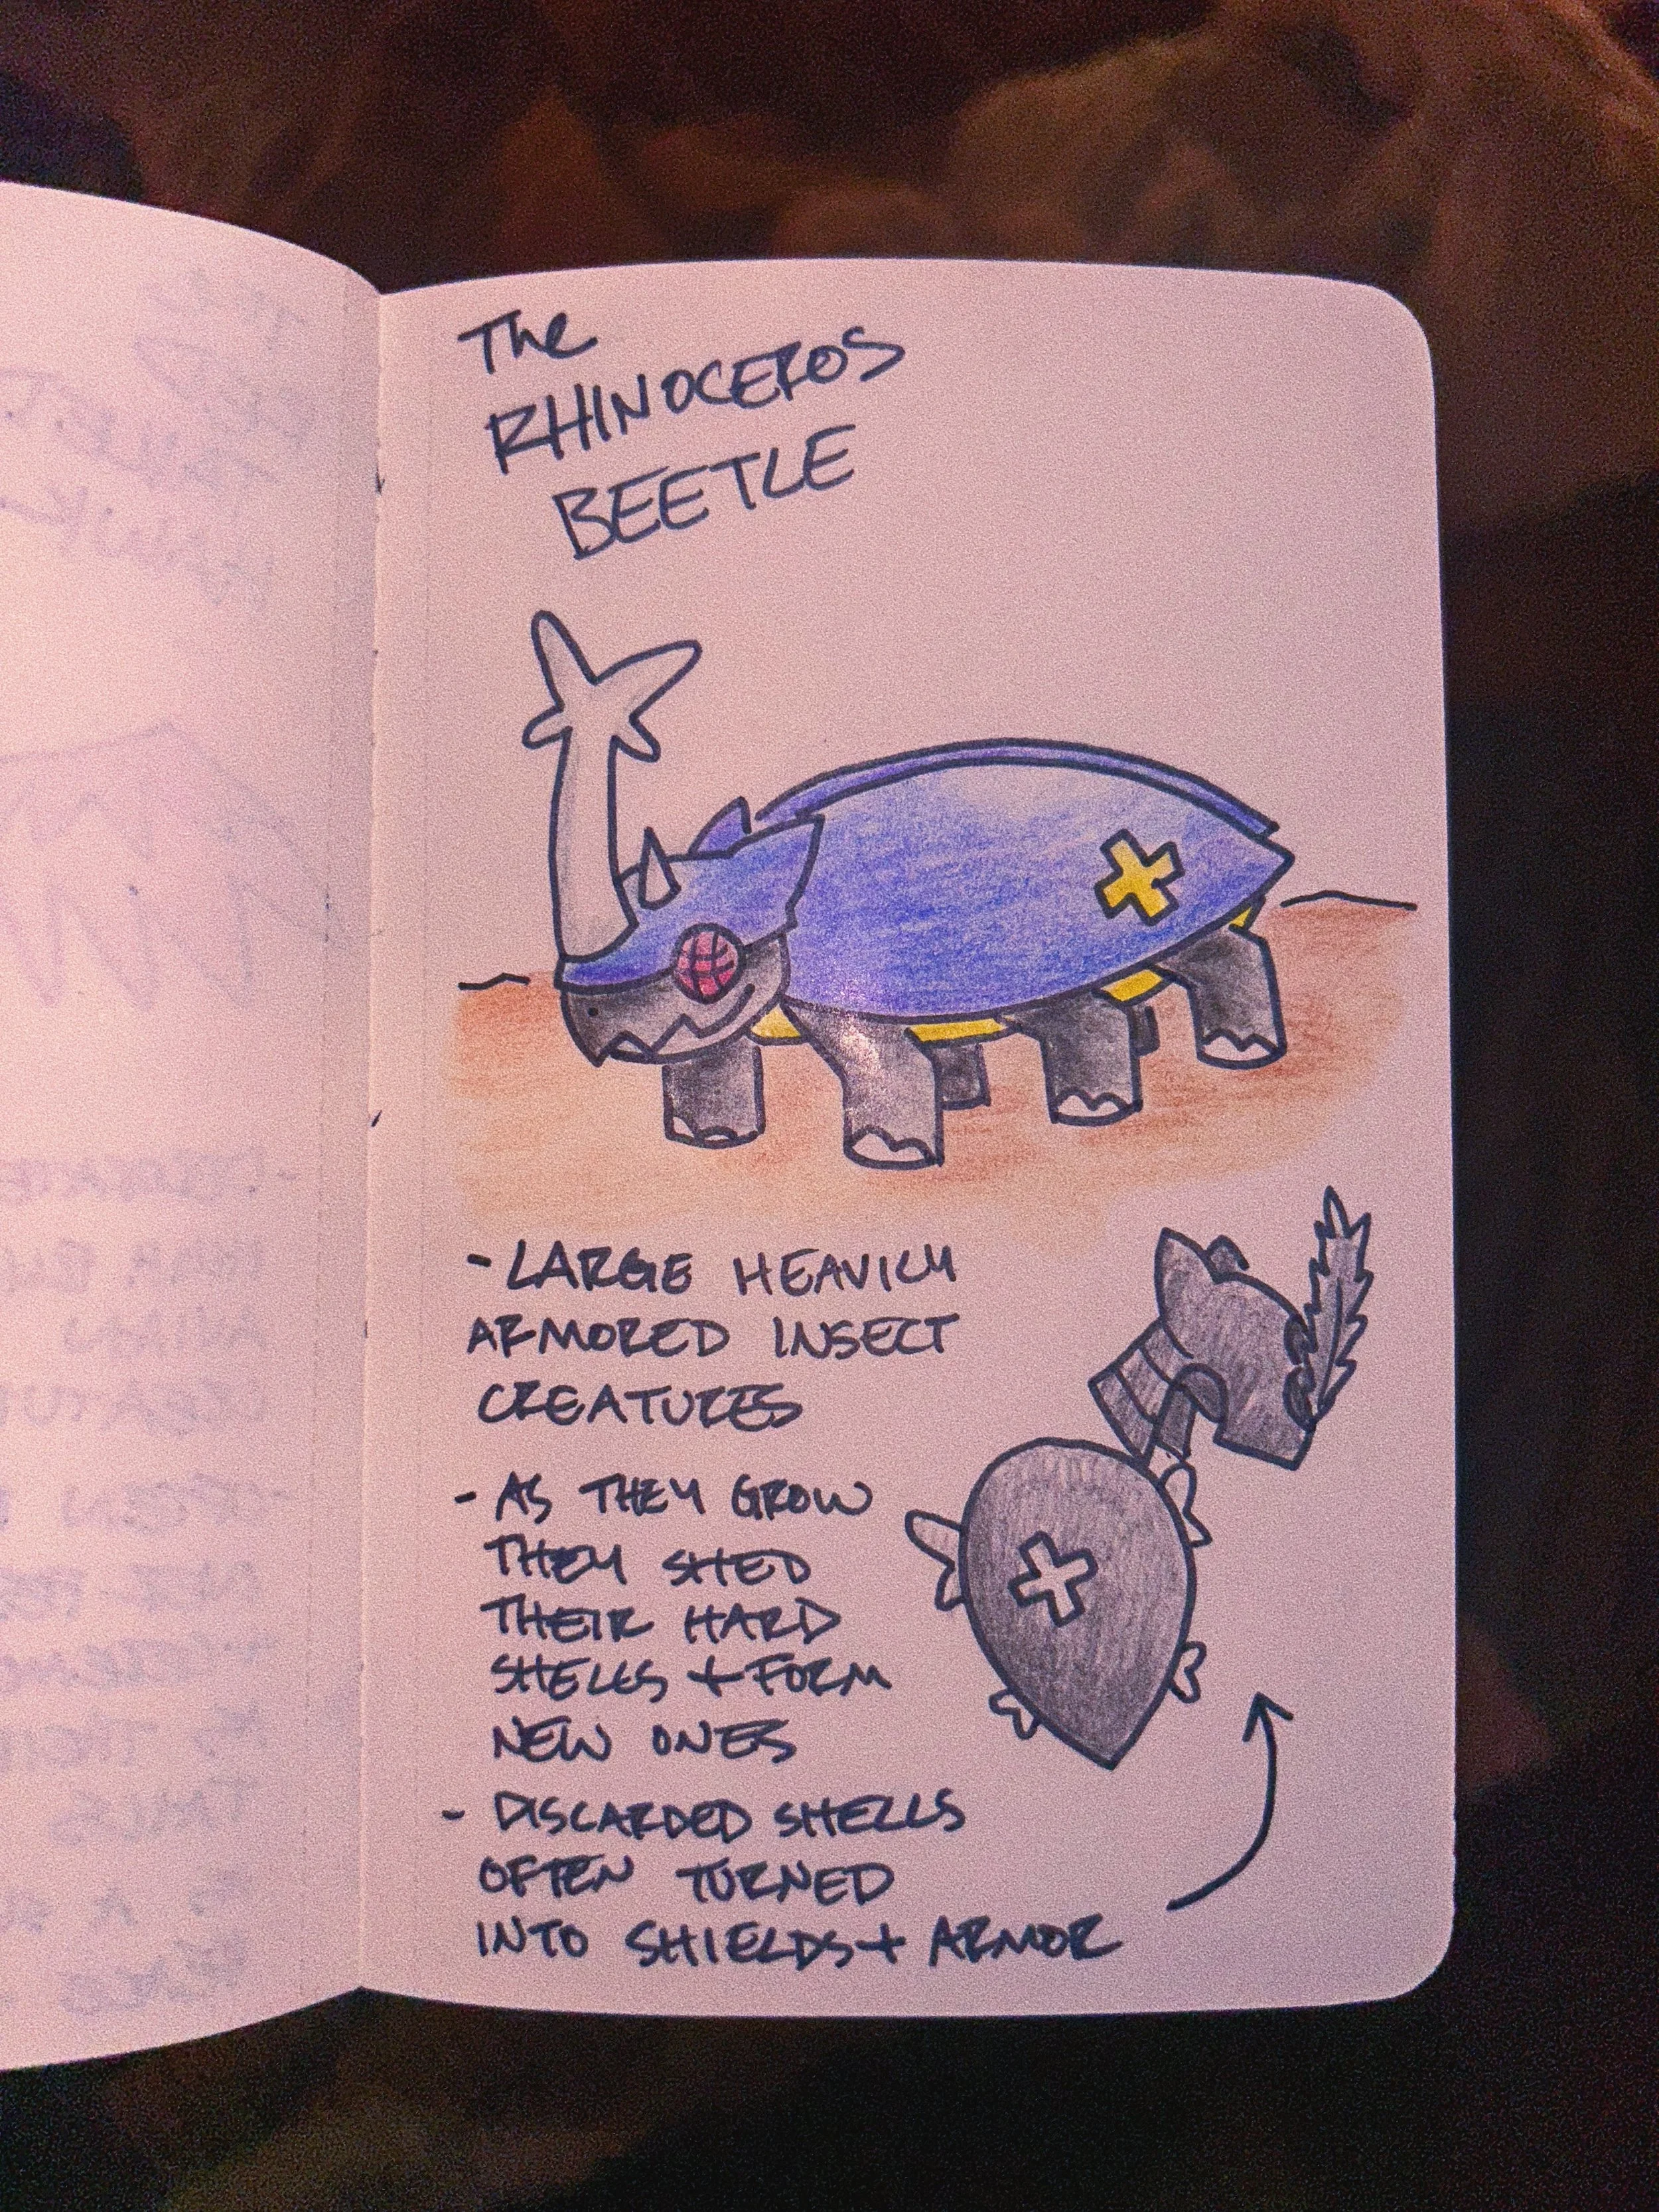 The
RHINOCEROS
BEETLE
- LARGE HEAVILY
ARMORED INSECT
CREATURES
- AS THEY GROW
THEY SHED
THEIR HARD
SHELLS + FORM
NEW ONES
- DISCARDED SHELLS
OFTEN TURNED
INTO SHIELDS + ARMOR